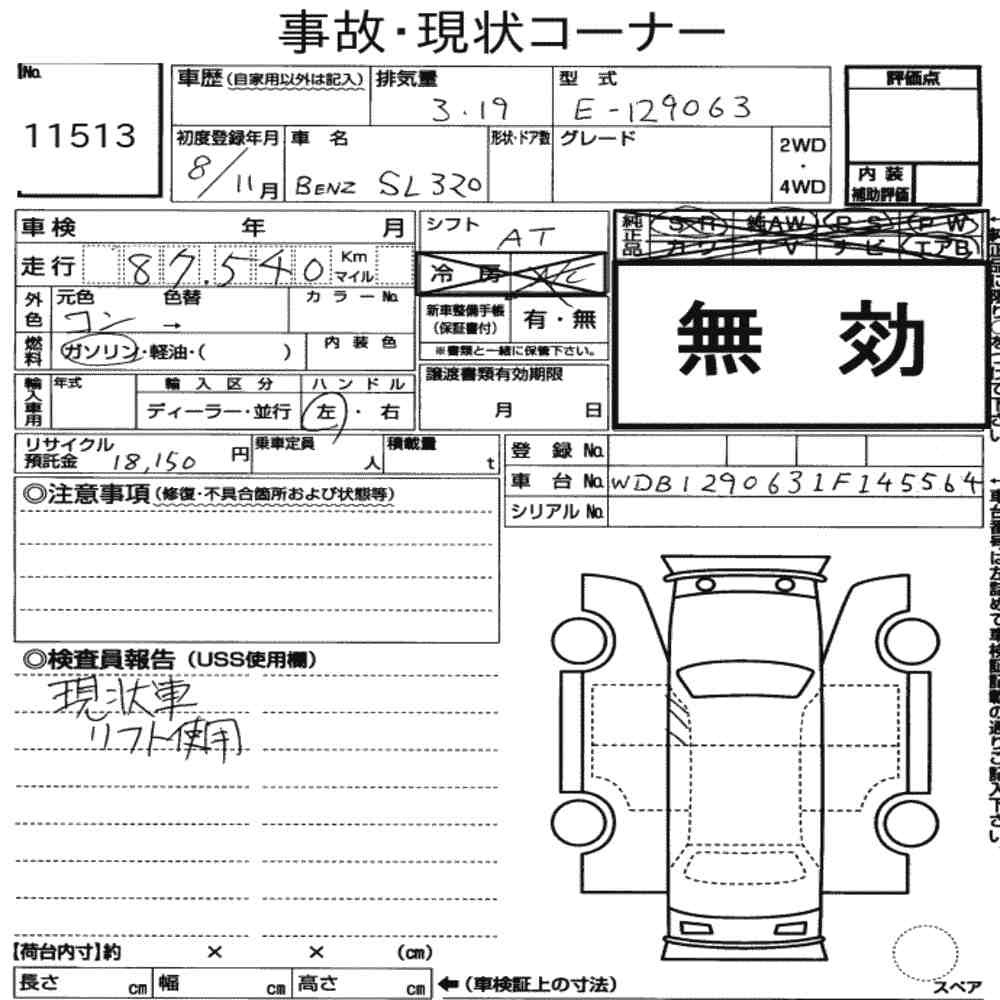 事故・現状コーナー
No.
11513
車歴（自家用以外は記入）
排気量
3.19
型式
E-129063
評価点
初度登録年月
8/11月
車名
BENZ SL320
形状・ドア数
グレード
2WD
・
4WD
内装
補助評価
車検 年 月
シフト
AT
純正品
SR 純AW PS PW
カワ TV ナビ エアB
走行 87,540 Km マイル
冷房
無効
外色
元色 色替
コン →
カラーNo.
新車整備手帳
（保証書付）
有・無
※書類と一緒に保管下さい。
燃料
ガソリン・軽油・（ ）
内装色
輸入車用
年式
輸入区分
ディーラー・並行
ハンドル
左・右
譲渡書類有効期限
月 日
リサイクル
預託金 18,150 円
乗車定員
人
積載量
t
登録No.
車台No. WDB1290631F145564
シリアルNo.
◎注意事項（修復・不具合箇所および状態等）
←車台番号は左詰めで車検証記載の通りご記入下さい。
◎検査員報告（USS使用欄）
現状車
リフト使用
【荷台内寸】約 × × （cm）
長さ cm 幅 cm 高さ cm
←（車検証上の寸法）
スペア